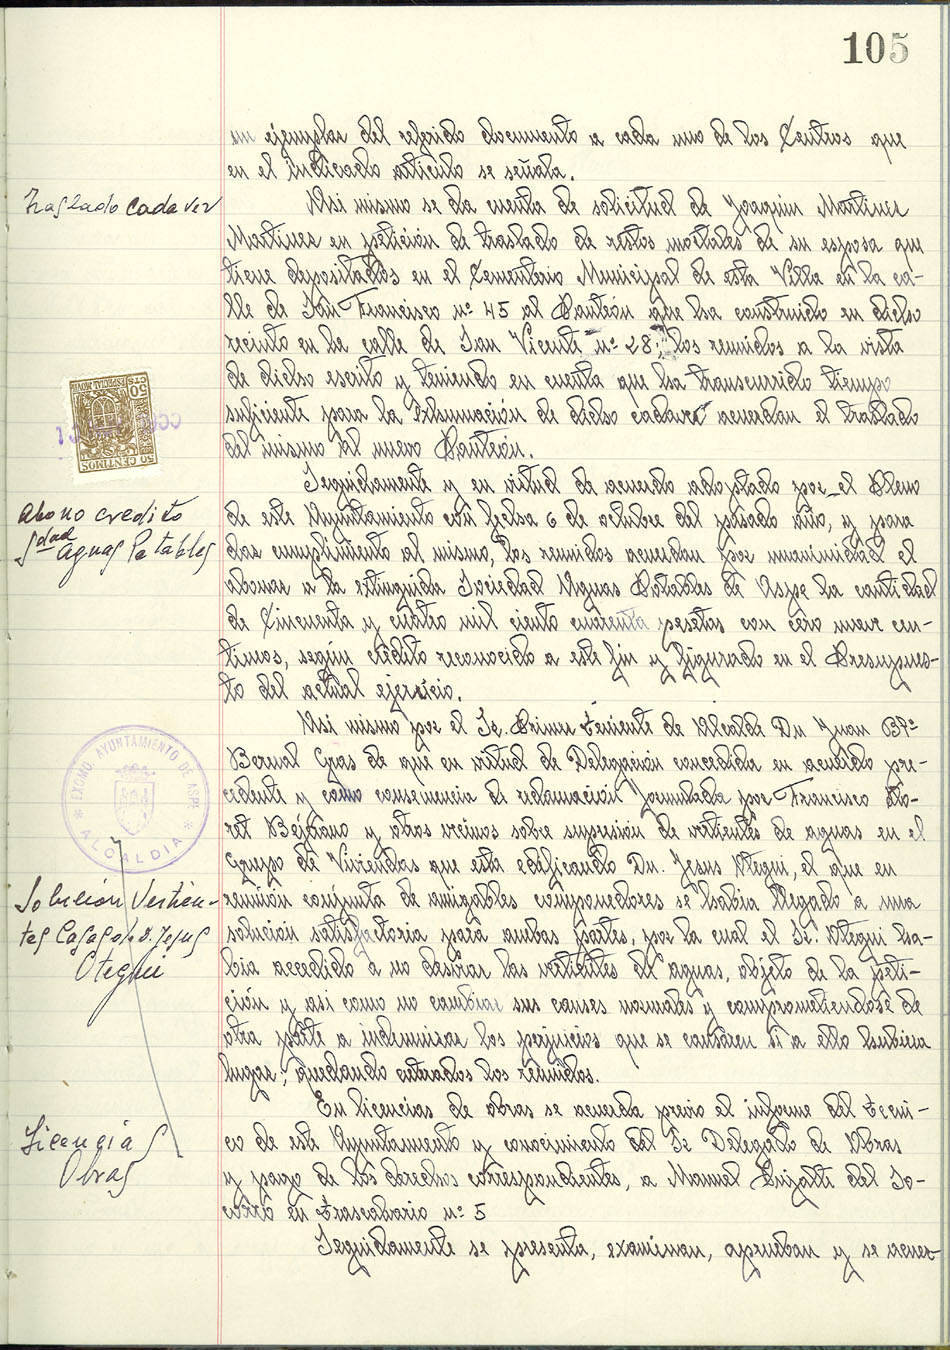 105
un ejemplar del referido documento a cada uno de los Centros que
en el indicado articulo se señala.
Traslado cadaver
Asi mismo se da cuenta de solicitud de Joaquin Martinez
Martinez en petición de traslado de restos mortales de su esposa que
tiene depositados en el Cementerio Municipal de esta Villa en la ca-
lle de San Francisco nº 45 al Panteón que ha construido en dicho
recinto en la calle de San Vicente nº 28; los reunidos a la vista
de dicho escrito y teniendo en cuenta que ha transcurrido tiempo
suficiente para la exhumación de dicho cadaver acuerdan el traslado
del mismo al nuevo Panteón.
50 CTS
ESPECIAL MOVIL
50 CENTIMOS
Abono credito
Sdad Aguas Potables
Seguidamente y en virtud de acuerdo adoptado por el Pleno
de este Ayuntamiento con fecha 6 de octubre del pasado año, y para
dar cumplimiento al mismo, los reunidos acuerdan por unanimidad el
abonar a la extinguida Sociedad Aguas Potables de Aspe la cantidad
de Cincuenta y cuatro mil ciento cuarenta pesetas con cero nueve cen-
timos, según crédito reconocido a este fin y figurado en el Presupues-
to del actual ejercicio.
EXCMO. AYUNTAMIENTO DE ASPE
* ALCALDIA *
Asi mismo por el Sr. Primer Teniente de Alcalde Dn Juan Btª
Bernal Cras de que en virtud de Delegación concedida en acuerdo pre-
cedente y como consecuencia de reclamación formulada por Francisco
Bejarano y otros vecinos sobre supresión de vertientes de aguas en el
Grupo de Viviendas que esta edificando Dn. Jesus Otegui, el que en
reunión conjunta de amigables componedores se habia llegado a una
solución satisfactoria para ambas partes, por la cual el Sr. Otegui ha-
bia accedido a no desviar las vertientes de aguas, objeto de la peti-
ción y asi como no cambiar sus causes normales y comprometiendose de
otra parte a indemnizar los perjuicios que se causaren si a ello hubiera
lugar; quedando enterados los reunidos.
Solución Vertien-
tes Casas de D. Jesus
Otegui
Licencias
Obras
En licencias de obras se acuerda previo el informe del tecni-
co de este Ayuntamiento y conocimiento del Sr Delegado de Obras
y pago de los derechos correspondientes, a Manuel del So-
corro en Trascalvario nº 5
Seguidamente se presenta, examinan, aprueban y se acuer-